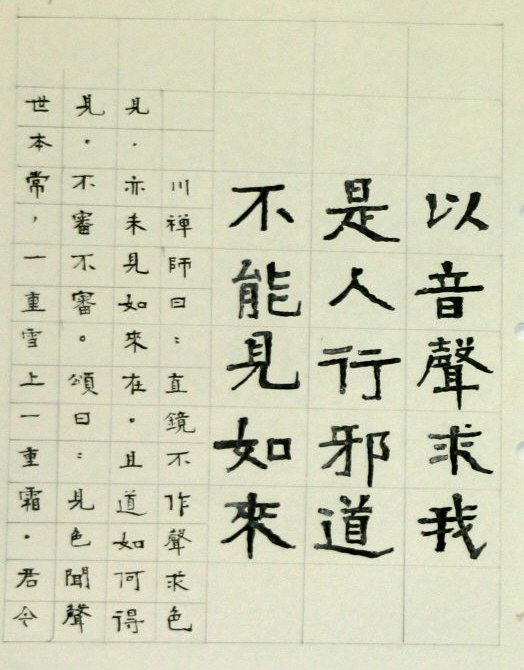 以音聲求我
是人行邪道
不能見如來
川禅師曰：直鏡不作聲求色
見．亦未見如來在．且道如何得
見．不審不審。頌曰：見色聞聲
世本常，一重雪上一重霜．君今